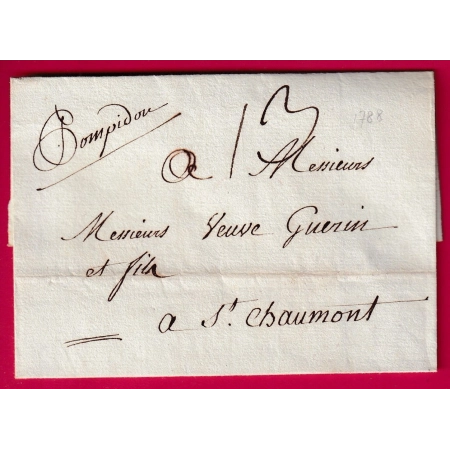 Pompidou
13
788
a Messieurs
Messieurs Veuve Guerin
et fils
a St. Chaumont